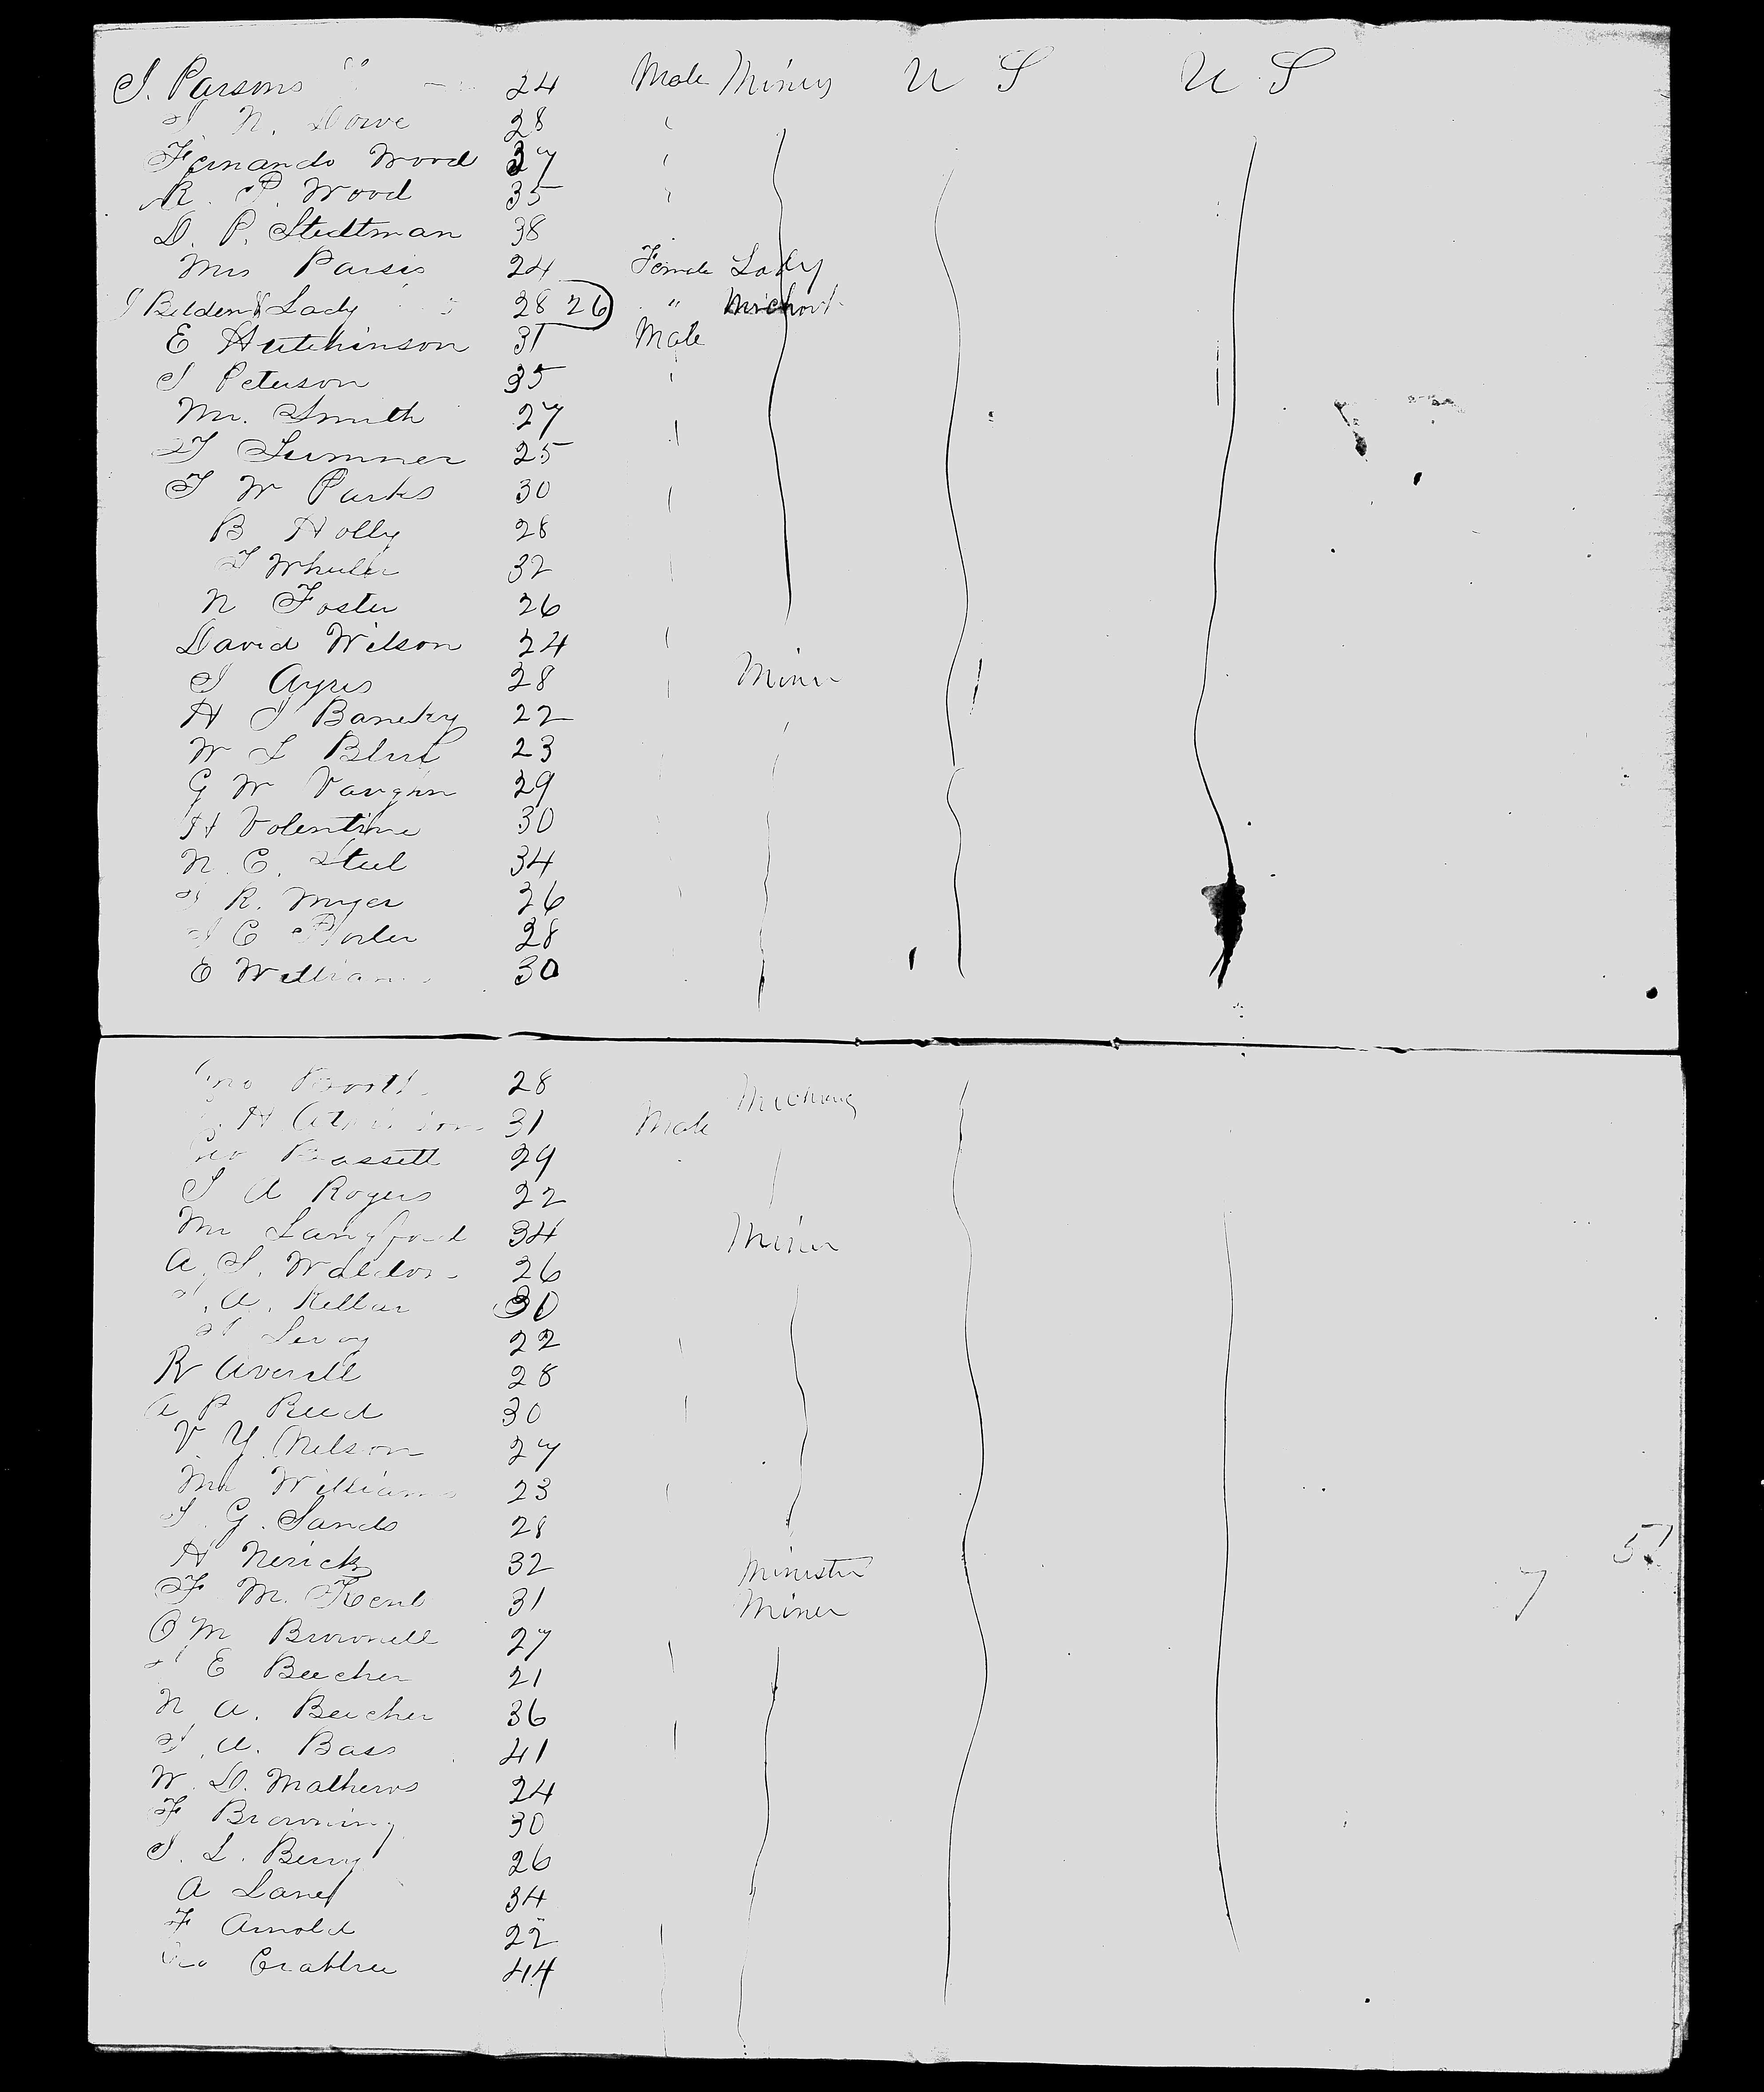 J. Parsons 24 Male Miners U S U S
J. N. Dowe 28
Fernando Wood 37
R. P. Wood 35
D. P. Stedtman 38
Mrs Parsis 24 Female Lady
J Belden & Lady 28 26 "
E Hutchinson 31 Male
J Peterson 35
Mr. Smith 27
J Sumner 25
J W Parks 30
B Holly 28
J Wheeler 32
N Foster 26
David Wilson 24
J Ayres 28 Miner
H J 22
W L 23
G W Vaughn 29
H Volentine 30
N. C. Steel 34
J R. Myer 26
J C Porter 28
E William 30
28
H 31 Male
Geo Bassett 29
J A Rogers 22
Mr Langford 34 Miner
A. S. Waldon 26
J. A. Kellar 30
J Leroy 22
R Averill 28
A P Reed 30
V. Y. Nelson 27
Mr Williams 23
J. G. Sands 28
H Nerick 32 Minister
F M. Kent 31 Miner
O M Brownell 27
J E Beecher 21
N A. Beecher 36
J. A. Bass 41
W. D. Mathews 24
F Browning 30
J. L. Berry 26
A Lane 34
F Arnold 22
Geo Crabtree 44